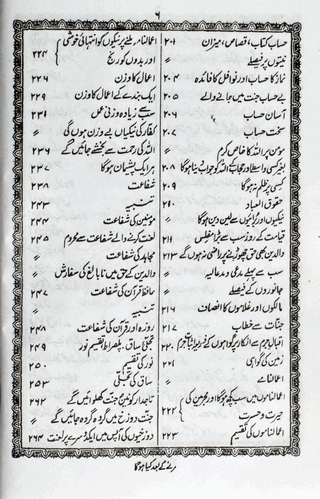 ۶
حساب کتاب، قصاص، میزان ۲۰۱
نیتوں پر فیصلے 〃
نماز کا حساب اور نوافل کا فائدہ ۲۰۴
بے حساب جنت میں جانے والے ۲۰۵
آسان حساب ۲۰۶
سخت حساب ۲۰۷
مومن پر اللہ کا خاص کرم 〃
بغیر کسی واسطے اور حجاب کے اللہ کو جواب دینا ہوگا ۲۰۸
کسی پر ظلم نہ ہوگا ۲۰۹
حقوق العباد ۲۱۰
نیکیوں اور برائیوں سے لین دین ہوگا 〃
قیامت کے روز سب سے بڑا مفلس ۲۱۱
والدین بھی حق چھوڑنے پر راضی نہ ہوں گے ۲۱۳
سب سے پہلے مدعی و مدعا علیہ 〃
جانوروں کے فیصلے 〃
مالکوں اور غلاموں کا انصاف ۲۱۶
جنات سے خطاب ۲۱۷
زمین کی گواہی ۲۲۱
اعمالنامے 〃
حیرت و حسرت ۲۲۲
اعمالناموں کی تقسیم ۲۲۳
اعمالنامہ ملنے پر نیکوں کو انتہائی خوشی
اور بدوں کو رنج ۲۲۴
اعمال کا وزن ۲۲۶
ایک بندے کے اعمال کا وزن ۲۲۹
سب سے زیادہ وزنی عمل ۲۳۱
کفار کی نیکیاں بے وزن ہوں گی 〃
اللہ کی رحمت سے بخشے جائیں گے ۲۳۶
ہر ایک پشیمان ہوگا ۲۳۷
شفاعت ۲۳۸
تنبیہ
مومنین کی شفاعت ۲۴۴
لعنت کرنے والے شفاعت سے محروم ۲۴۵
مجاہد کی شفاعت 〃
والدین کے حق میں نابالغ کی سفارش 〃
حافظ قرآن کی شفاعت ۲۴۷
تنبیہ 〃
روزہ اور قرآن کی شفاعت ۲۴۸
تجلی ساق، پلصراط، تقسیم نور ۲۴۹
نور کی تقسیم ۲۵۰
ساق کی تجلی ۲۵۳
جنت دوزخ میں گروہ گروہ جائیں گے 〃
دوزخیوں کی آپس میں ایک دوسرے پر لعنت ۲۶۴
مرنے کے بعد کیا ہوگا